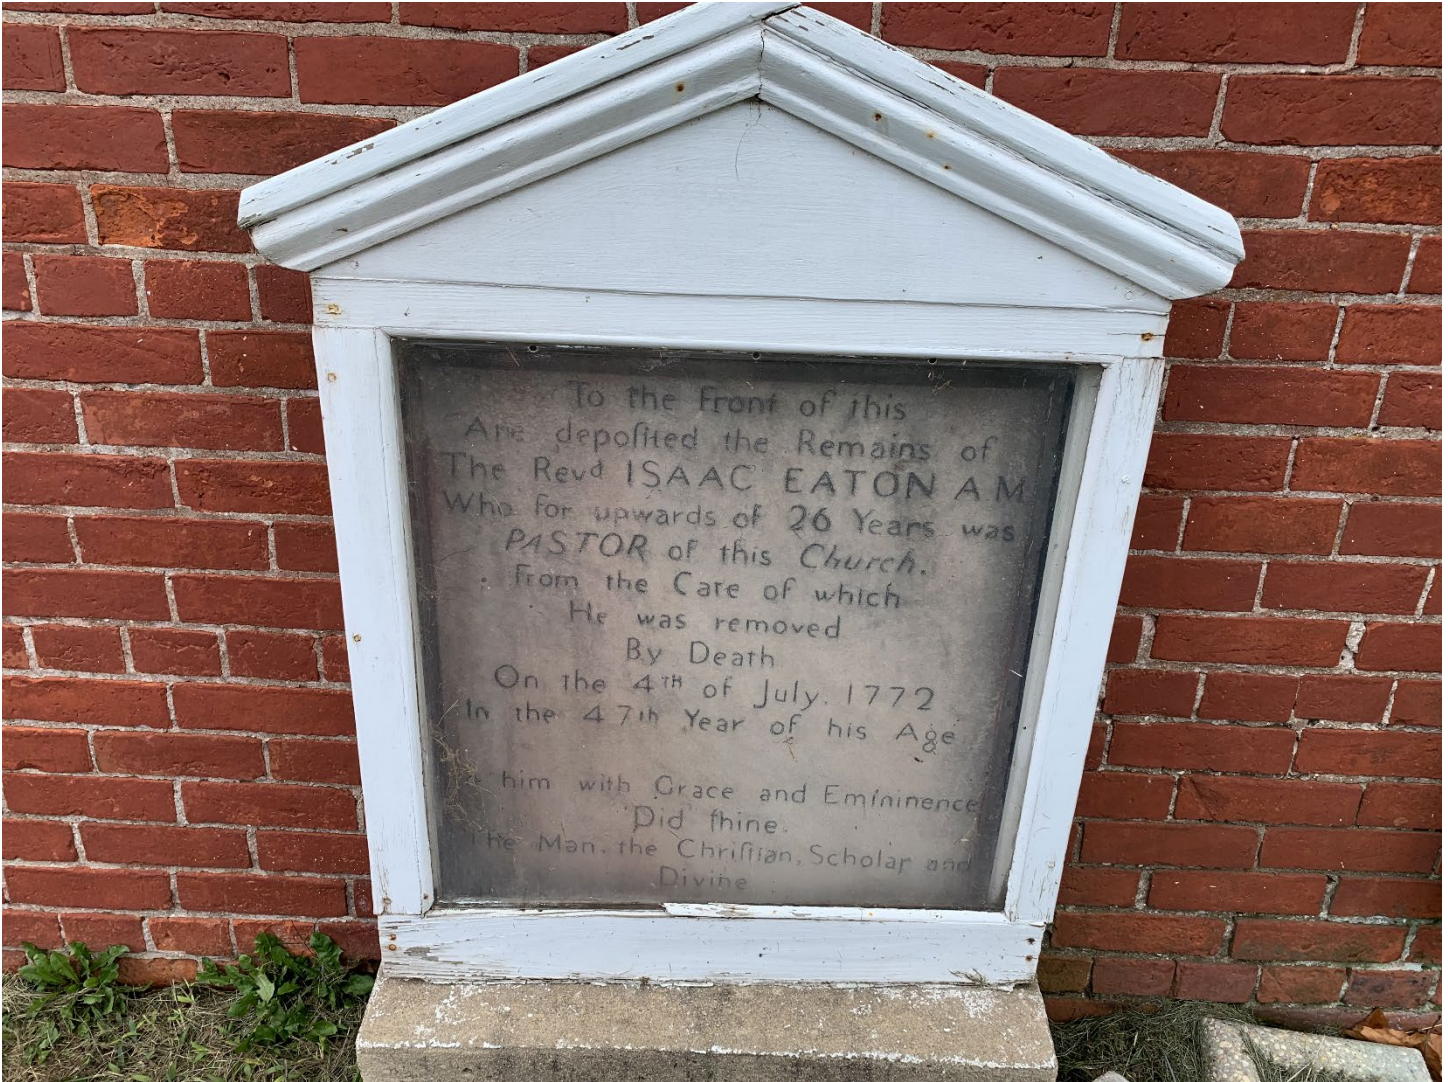 To the Front of this
Are depoſited the Remains of
The Revd ISAAC EATON A M
Who for upwards of 26 Years was
PASTOR of this Church.
From the Care of which
He was removed
By Death
On the 4TH of July. 1772
In the 47th Year of his Age
him with Grace and Emininence
Did ſhine.
The Man, the Chriſtian, Scholar and
Divine